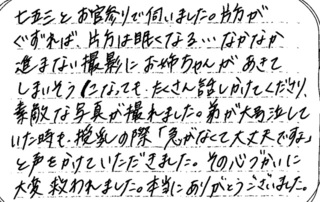 七五三とお宮参りで伺いました。片方が
ぐずれば、片方は眠くなる…なかなか
進まない撮影にお姉ちゃんがあきて
しまいそうになっても、たくさん話しかけてくださり、
素敵な写真が撮れました。弟が大号泣して
いた時も、授乳の際「急がなくて大丈夫ですよ」
と声をかけていただきました。その心づかいに
大変救われました。本当にありがとうございました。